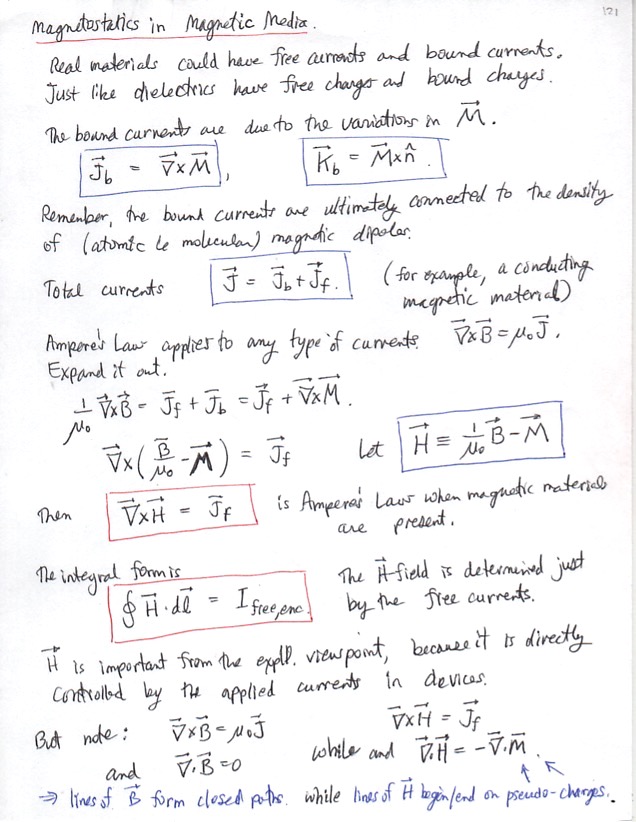 121
Magnetostatics in Magnetic Media.
Real materials could have free currents and bound currents.
Just like dielectrics have free charges and bound charges.
The bound currents are due to the variations in M⃗.
J⃗_b = ∇⃗×M⃗, K⃗_b = M⃗×n̂.
Remember, the bound currents are ultimately connected to the density
of (atomic & molecular) magnetic dipoles.
Total currents J⃗ = J⃗_b + J⃗_f. (for example, a conducting
magnetic material)
Ampere's Law applies to any type of currents. ∇⃗×B⃗ = μ₀J⃗.
Expand it out.
1/μ₀ ∇⃗×B⃗ = J⃗_f + J⃗_b = J⃗_f + ∇⃗×M⃗.
∇⃗×(B⃗/μ₀ - M⃗) = J⃗_f Let H⃗ ≡ 1/μ₀ B⃗ - M⃗
Then ∇⃗×H⃗ = J⃗_f is Ampere's Law when magnetic materials
are present.
The integral form is
∮ H⃗·dl⃗ = I_free,enc. The H⃗-field is determined just
by the free currents.
H⃗ is important from the exptl. viewpoint, because it is directly
controlled by the applied currents in devices.
But note: ∇⃗×B⃗ = μ₀J⃗ ∇⃗×H⃗ = J⃗_f
and ∇⃗·B⃗ = 0 while and ∇⃗·H⃗ = -∇⃗·M⃗.
⇒ lines of B⃗ form closed paths. while lines of H⃗ begin/end on pseudo-charges.